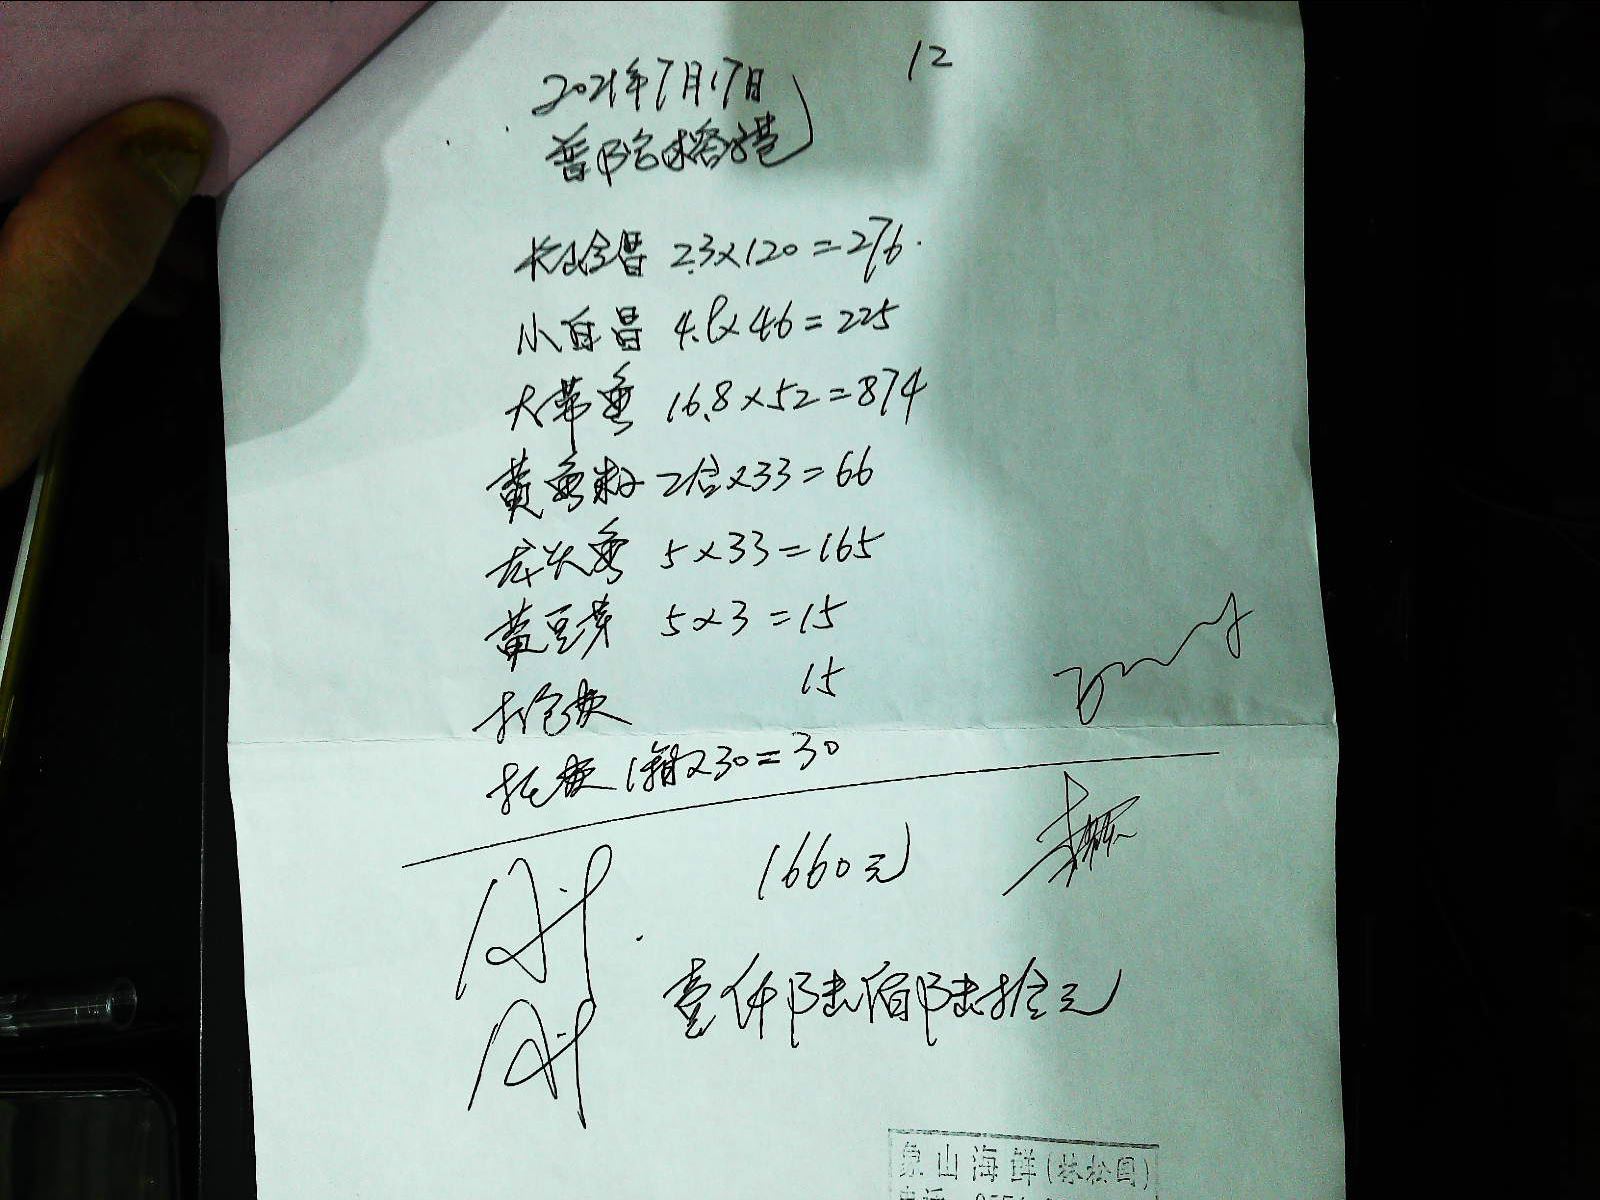 12
2021年7月17日
普陀
2.3×120=276
小白昌 4.9×46=225
大带鱼 16.8×52=874
黄鱼籽 2倍×33=66
龙头鱼 5×33=165
黄豆芽 5×3=15
打包费 15
托费 1箱×30=30
1660元
壹仟陆佰陆拾元
象山海鲜(林松国)